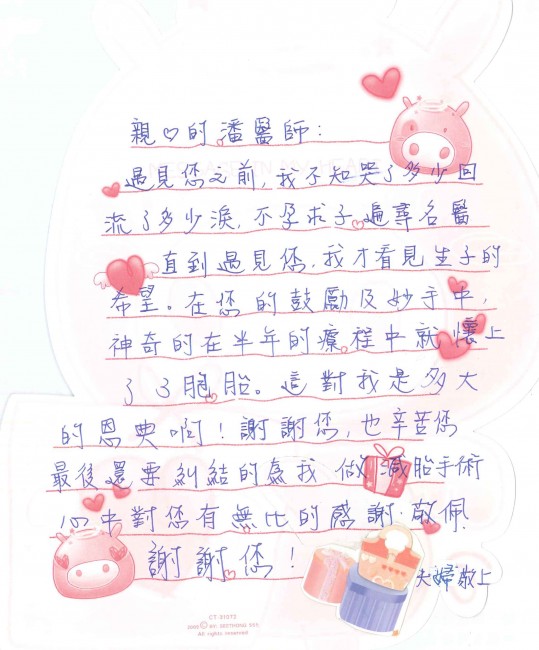 親♡的潘醫師:
遇見您之前,我不知哭了多少回
流了多少淚,不孕求子遍尋名醫
直到遇見您,我才看見生子的
希望。在您的鼓勵及妙手中,
神奇的在半年的療程中就懷上
了3胞胎。這對我是多大
的恩典啊!謝謝您,也辛苦您
最後還要糾結的為我做減胎手術
心中對您有無比的感謝.敬佩
謝謝您!
夫婦敬上
CT-3107S